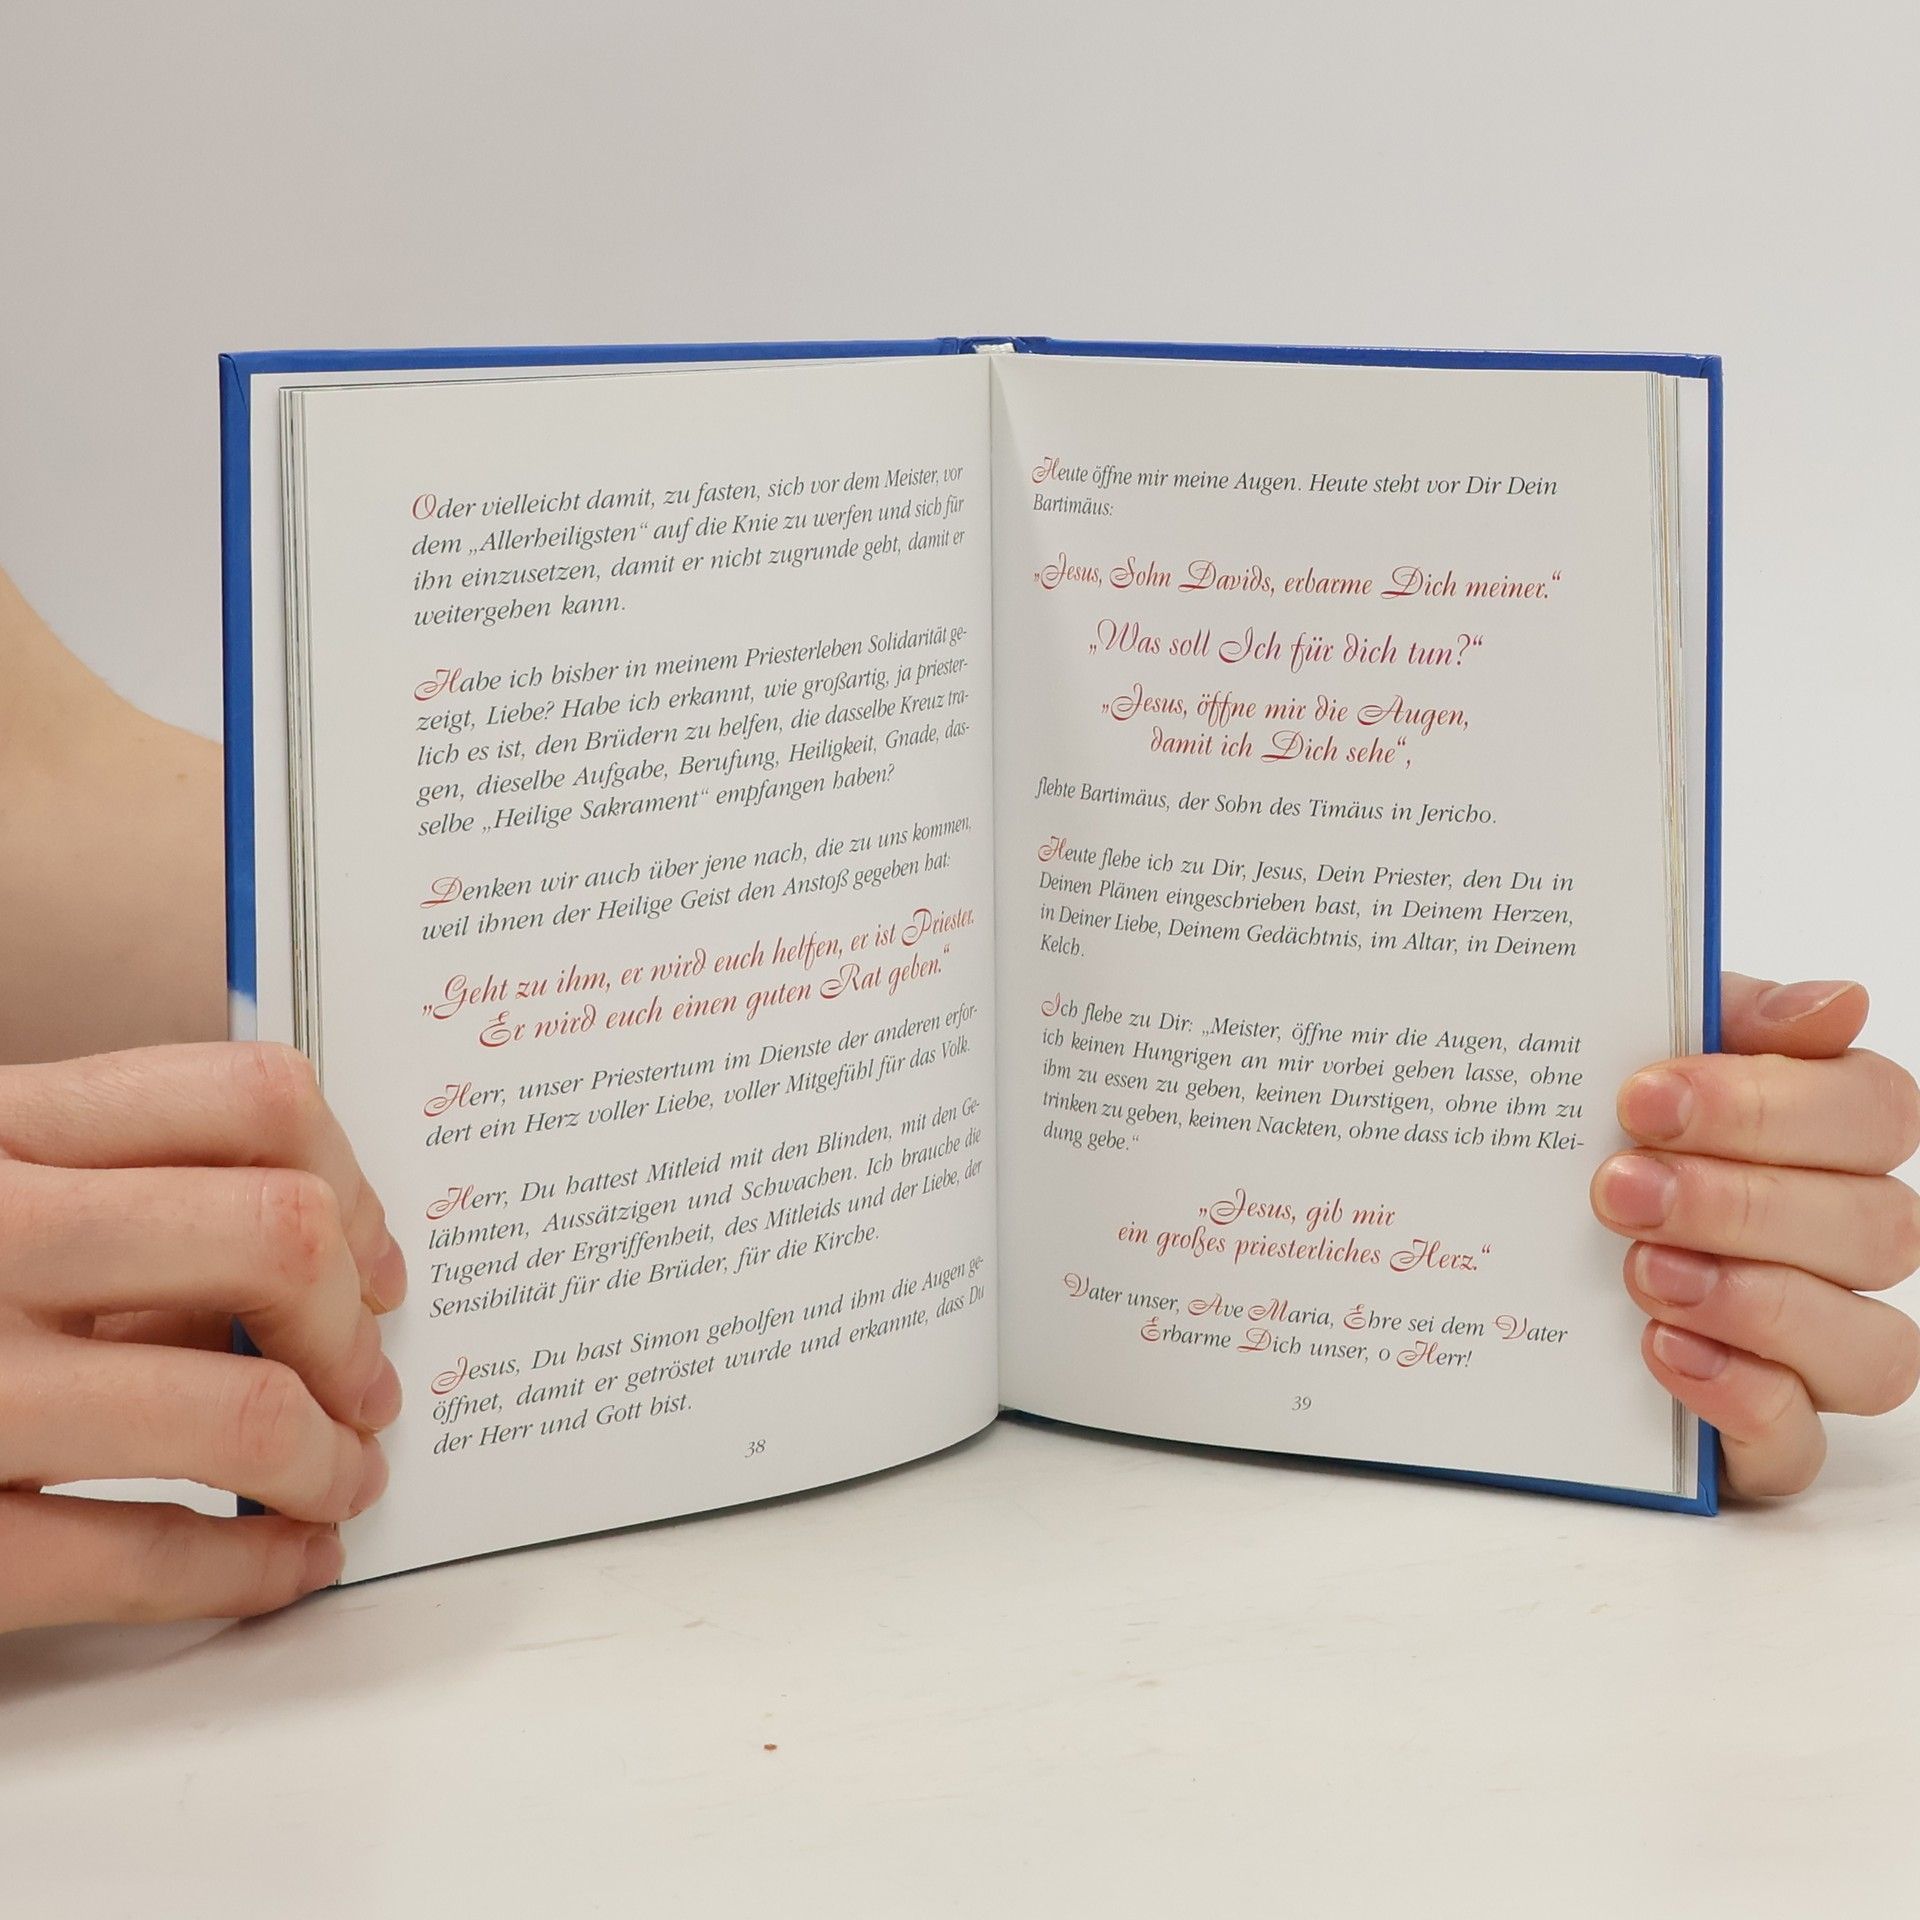 Oder vielleicht damit, zu fasten, sich vor dem Meister, vor
dem „Allerheiligsten“ auf die Knie zu werfen und sich für
ihn einzusetzen, damit er nicht zugrunde geht, damit er
weitergehen kann.
Habe ich bisher in meinem Priesterleben Solidarität ge-
zeigt, Liebe? Habe ich erkannt, wie großartig, ja priester-
lich es ist, den Brüdern zu helfen, die dasselbe Kreuz tra-
gen, dieselbe Aufgabe, Berufung, Heiligkeit, Gnade, das-
selbe „Heilige Sakrament“ empfangen haben?
Denken wir auch über jene nach, die zu uns kommen,
weil ihnen der Heilige Geist den Anstoß gegeben hat:
„Geht zu ihm, er wird euch helfen, er ist Priester.
Er wird euch einen guten Rat geben.“
Herr, unser Priestertum im Dienste der anderen erfor-
dert ein Herz voller Liebe, voller Mitgefühl für das Volk.
Herr, Du hattest Mitleid mit den Blinden, mit den Ge-
lähmten, Aussätzigen und Schwachen. Ich brauche die
Tugend der Ergriffenheit, des Mitleids und der Liebe, der
Sensibilität für die Brüder, für die Kirche.
Jesus, Du hast Simon geholfen und ihm die Augen ge-
öffnet, damit er getröstet wurde und erkannte, dass Du
der Herr und Gott bist.
38
Heute öffne mir meine Augen. Heute steht vor Dir Dein
Bartimäus:
„Jesus, Sohn Davids, erbarme Dich meiner.“
„Was soll Ich für dich tun?“
„Jesus, öffne mir die Augen,
damit ich Dich sehe“,
flehte Bartimäus, der Sohn des Timäus in Jericho.
Heute flehe ich zu Dir, Jesus, Dein Priester, den Du in
Deinen Plänen eingeschrieben hast, in Deinem Herzen,
in Deiner Liebe, Deinem Gedächtnis, im Altar, in Deinem
Kelch.
Ich flehe zu Dir: „Meister, öffne mir die Augen, damit
ich keinen Hungrigen an mir vorbei gehen lasse, ohne
ihm zu essen zu geben, keinen Durstigen, ohne ihm zu
trinken zu geben, keinen Nackten, ohne dass ich ihm Klei-
dung gebe.“
„Jesus, gib mir
ein großes priesterliches Herz.“
Vater unser, Ave Maria, Ehre sei dem Vater
Erbarme Dich unser, o Herr!
39